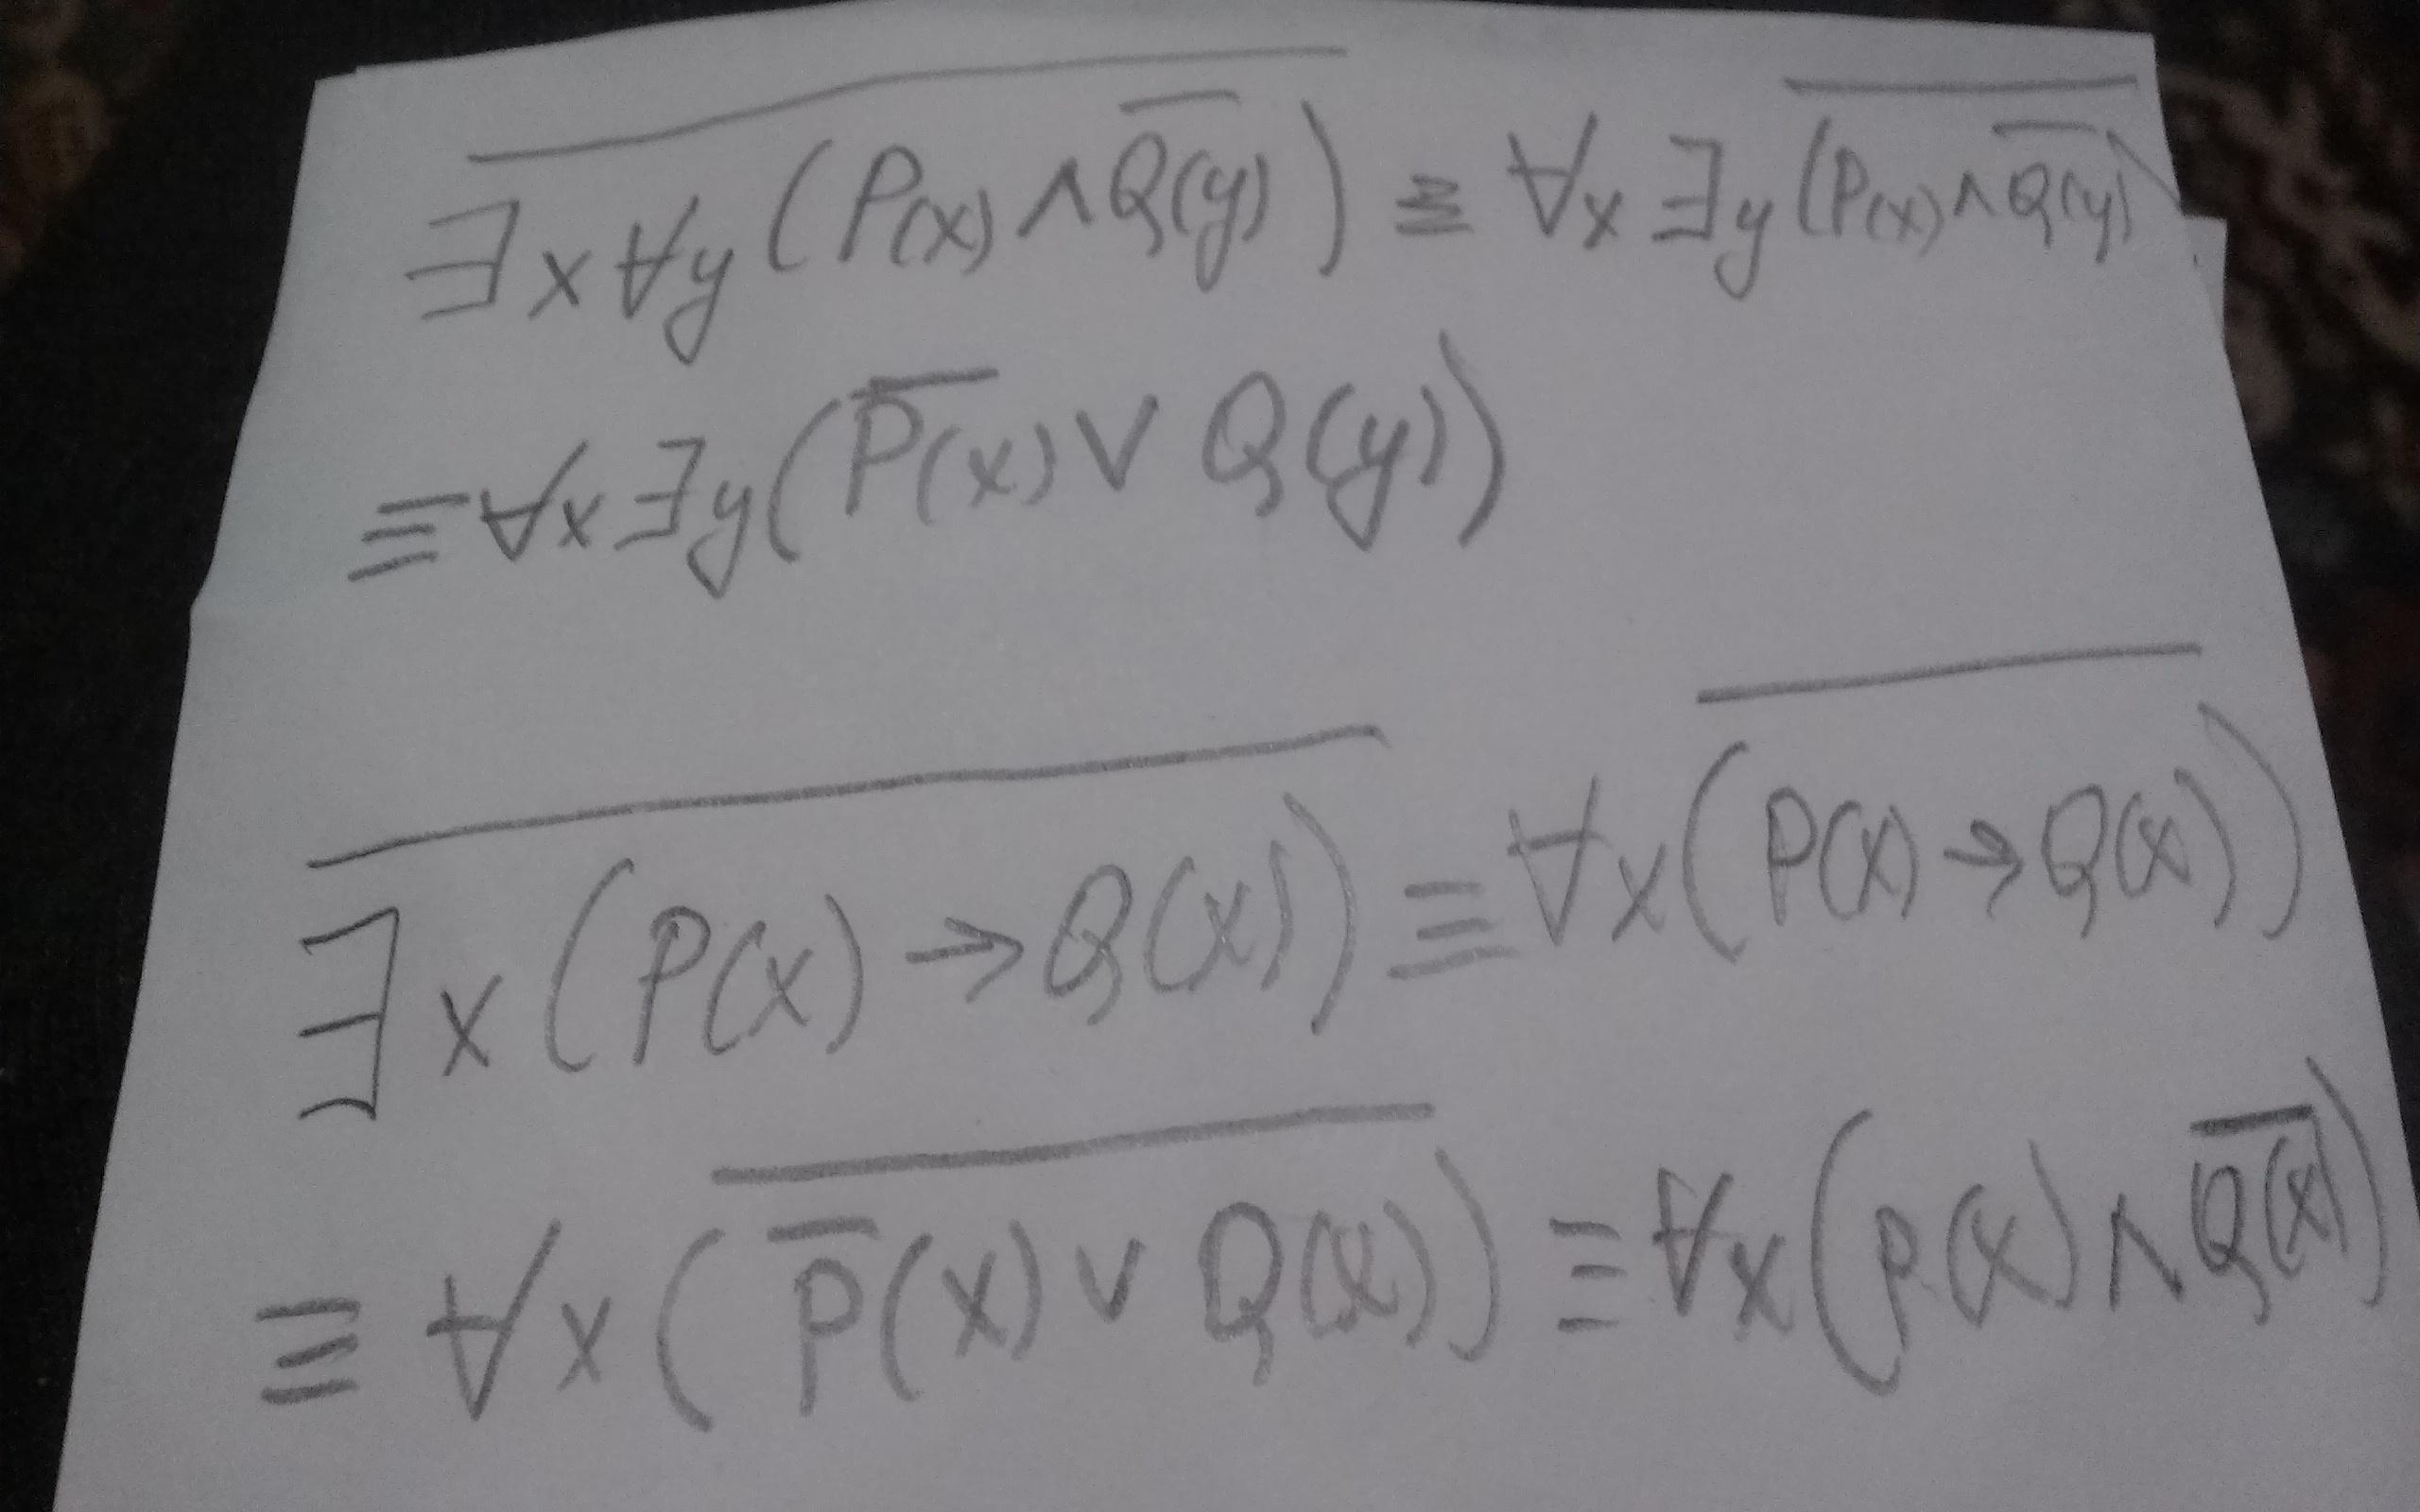 \overline{∃x∀y(P(x)∧\overline{Q(y)})} ≡ ∀x∃y\overline{(P(x)∧\overline{Q(y)})}
≡∀x∃y(\overline{P(x)}∨Q(y))
\overline{∃x(P(x)→Q(x))} ≡ ∀x\overline{(P(x)→Q(x))}
≡∀x\overline{(\overline{P}(x)∨Q(x))} ≡ ∀x(P(x)∧\overline{Q(x)})